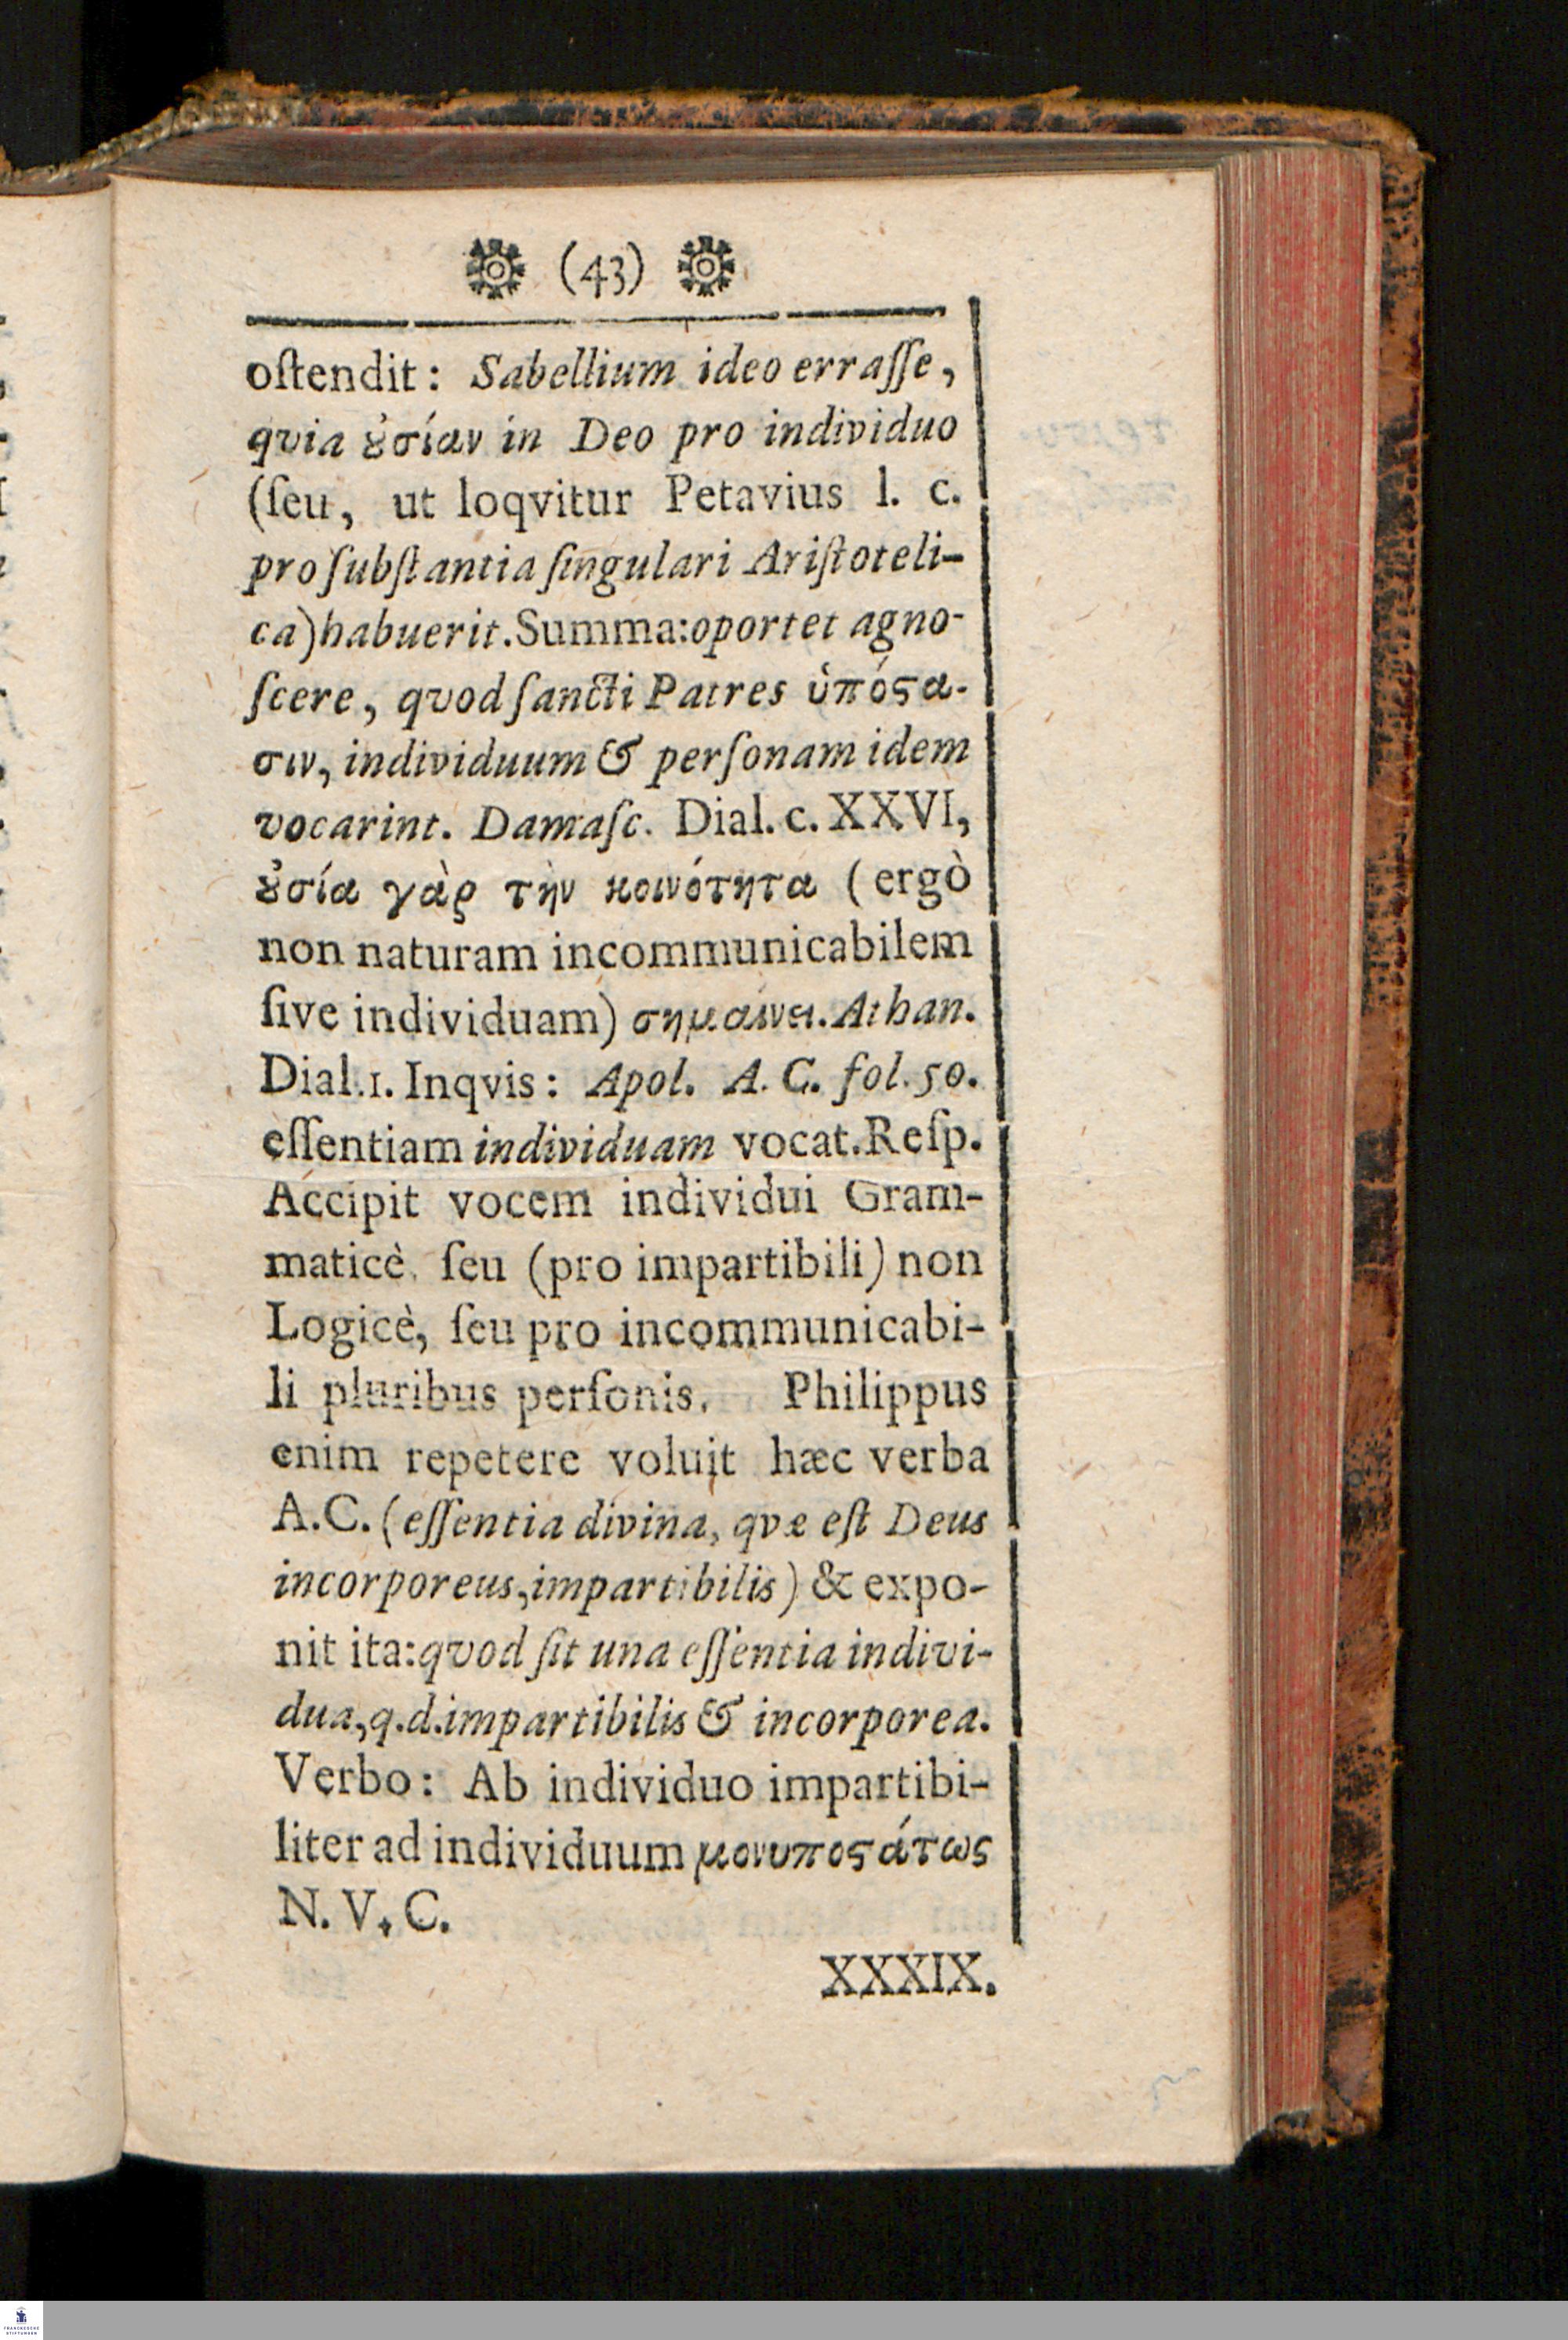 (43)
oſtendit: Sabellium ideo erraſſe,
qvia ȣ̓σίαν in Deo pro individuo
(ſeu, ut loqvitur Petavius l. c.
pro ſubſtantia ſingulari Ariſtoteli-
ca) habuerit. Summa: oportet agno-
ſcere, qvod ſancti Patres ὑπόϛα-
σιν, individuum & perſonam idem
vocarint. Damaſc. Dial. c. XXVI,
ȣ̓σία γὰρ τὴν κοινότητα (ergò
non naturam incommunicabilem
ſive individuam) σημαίνει. Athan.
Dial. 1. Inqvis: Apol. A. C. fol. 50.
eſſentiam individuam vocat. Reſp.
Accipit vocem individui Gram-
maticè ſeu (pro impartibili) non
Logicè, ſeu pro incommunicabi-
li pluribus perſonis. Philippus
enim repetere voluit hæc verba
A. C. (eſſentia divina, qvæ eſt Deus
incorporeus, impartibilis) & expo-
nit ita: qvod ſit una eſſentia indivi-
dua, q. d. impartibilis & incorporea.
Verbo: Ab individuo impartibi-
liter ad individuum μονυποϛάτως
N. V. C.
XXXIX.
FRANCKESCHE
STIFTUNGEN